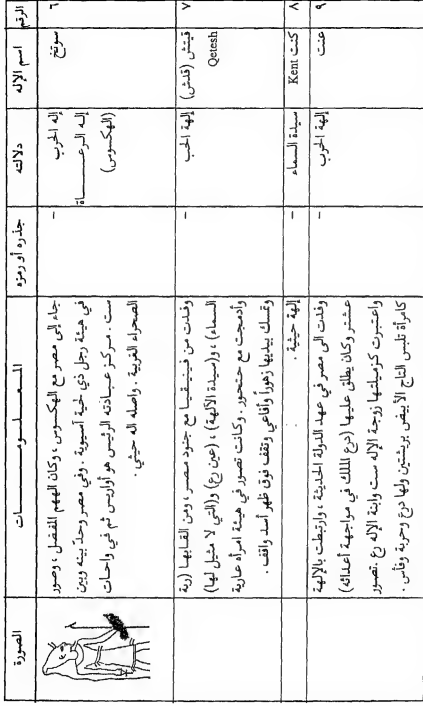 الرقم
اسم الإله
دلالته
جذره أو رمزه
المـعـلـــومـــات
الصورة
٦
سوتخ
إله الحرب
إلـه الـرعـــــاة
(الهكسوس)
-
جاء إلى مصر مع الهكسوس ، وكان إلههم المفضل ، وصور
في هيئة رجل ذي لحية أسيوية . وفي مصر وحدّ بينه وبين
ست . مـركـز عبـادته الرئيس هو أواريس ثم في واحـات
الصحراء الغربية . وأصله اله حيثي .
٧
قيتش (قلش)
Qetesh
إلهة الحب
-
وفلدت من فـيـنـيـقـيـا مع جنود مـصـر ، ومن القـابـهـا (ربة
السماء) ، و(سيدة الآلهة) ، (عين رع) و(التي لا مثيل لها)
وأدمجت مع حتحور . وكانت تصور في هيئة امرأة عارية
وتمسك بيديها زهوراً وأفاعي وتقف فوق ظهر أسد واقف .
٨
كنت Kent
سيدة السماء
-
إلهة حيثية .
٩
عنت
إلهة الحرب
-
وفلدت الى مصر في عهد الدولة الحديثة ، وارتبطت بالإلهة
عشتر وكان يطلق عليها (درع الملك في مواجهة أعدائه)
واعتبرت كزميلتها زوجة الإله ست وابنة الإله رع . تصور
كامرأة تلبس التاج الأبيض بريشتين ولها درع وحربة وفأس .